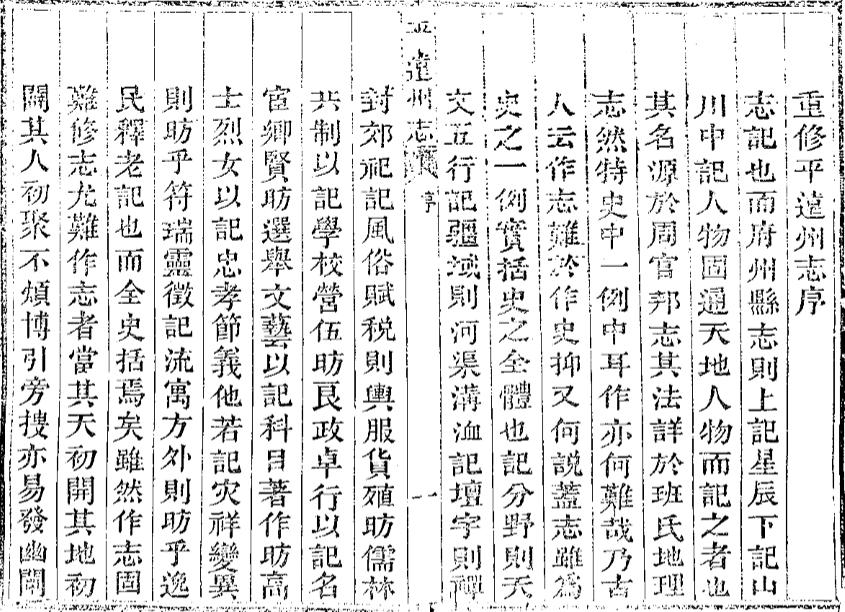 重修平遠州志序
志記也而府州縣志則上記星辰下記山
川中記人物固通天地人物而記之者也
其名源於周官邦志其法詳於班氏地理
志然特史中一例中耳作亦何難哉乃古
人云作志難於作史抑又何説蓋志雖為
史之一例實括史之全體也記分野則天
文五行記疆域則河渠溝洫記壇宇則禪
平遠州志 序 一
封郊祀記風俗賦税則輿服貨殖昉儒林
共制以記學校營伍昉良政卓行以記名
宦鄉賢昉選舉文藝以記科目著作昉高
士烈女以記忠孝節義他若記灾祥變異
則昉乎符瑞靈徵記流寓方外則昉乎逸
民釋老記也而全史括焉矣雖然作志固
難修志尤難作志者當其天初開其地初
闢其人初聚不煩博引旁搜亦易發幽闡